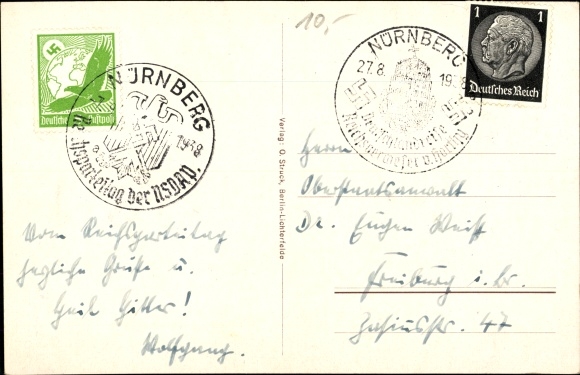 10,-
Deutsche Luftpost
NÜRNBERG
1938
Reichsparteitag der NSDAP.
a
NÜRNBERG
27.8. 1938
1 1
Deutsches Reich
Verlag: O. Struck, Berlin-Lichterfelde
Vom Reichsparteitag
herzliche Grüße u.
Heil Hitler!
Wolfgang.
Herrn
Oberstaatsanwalt
Dr. Eugen Weiß
Freiburg i. Br.
47